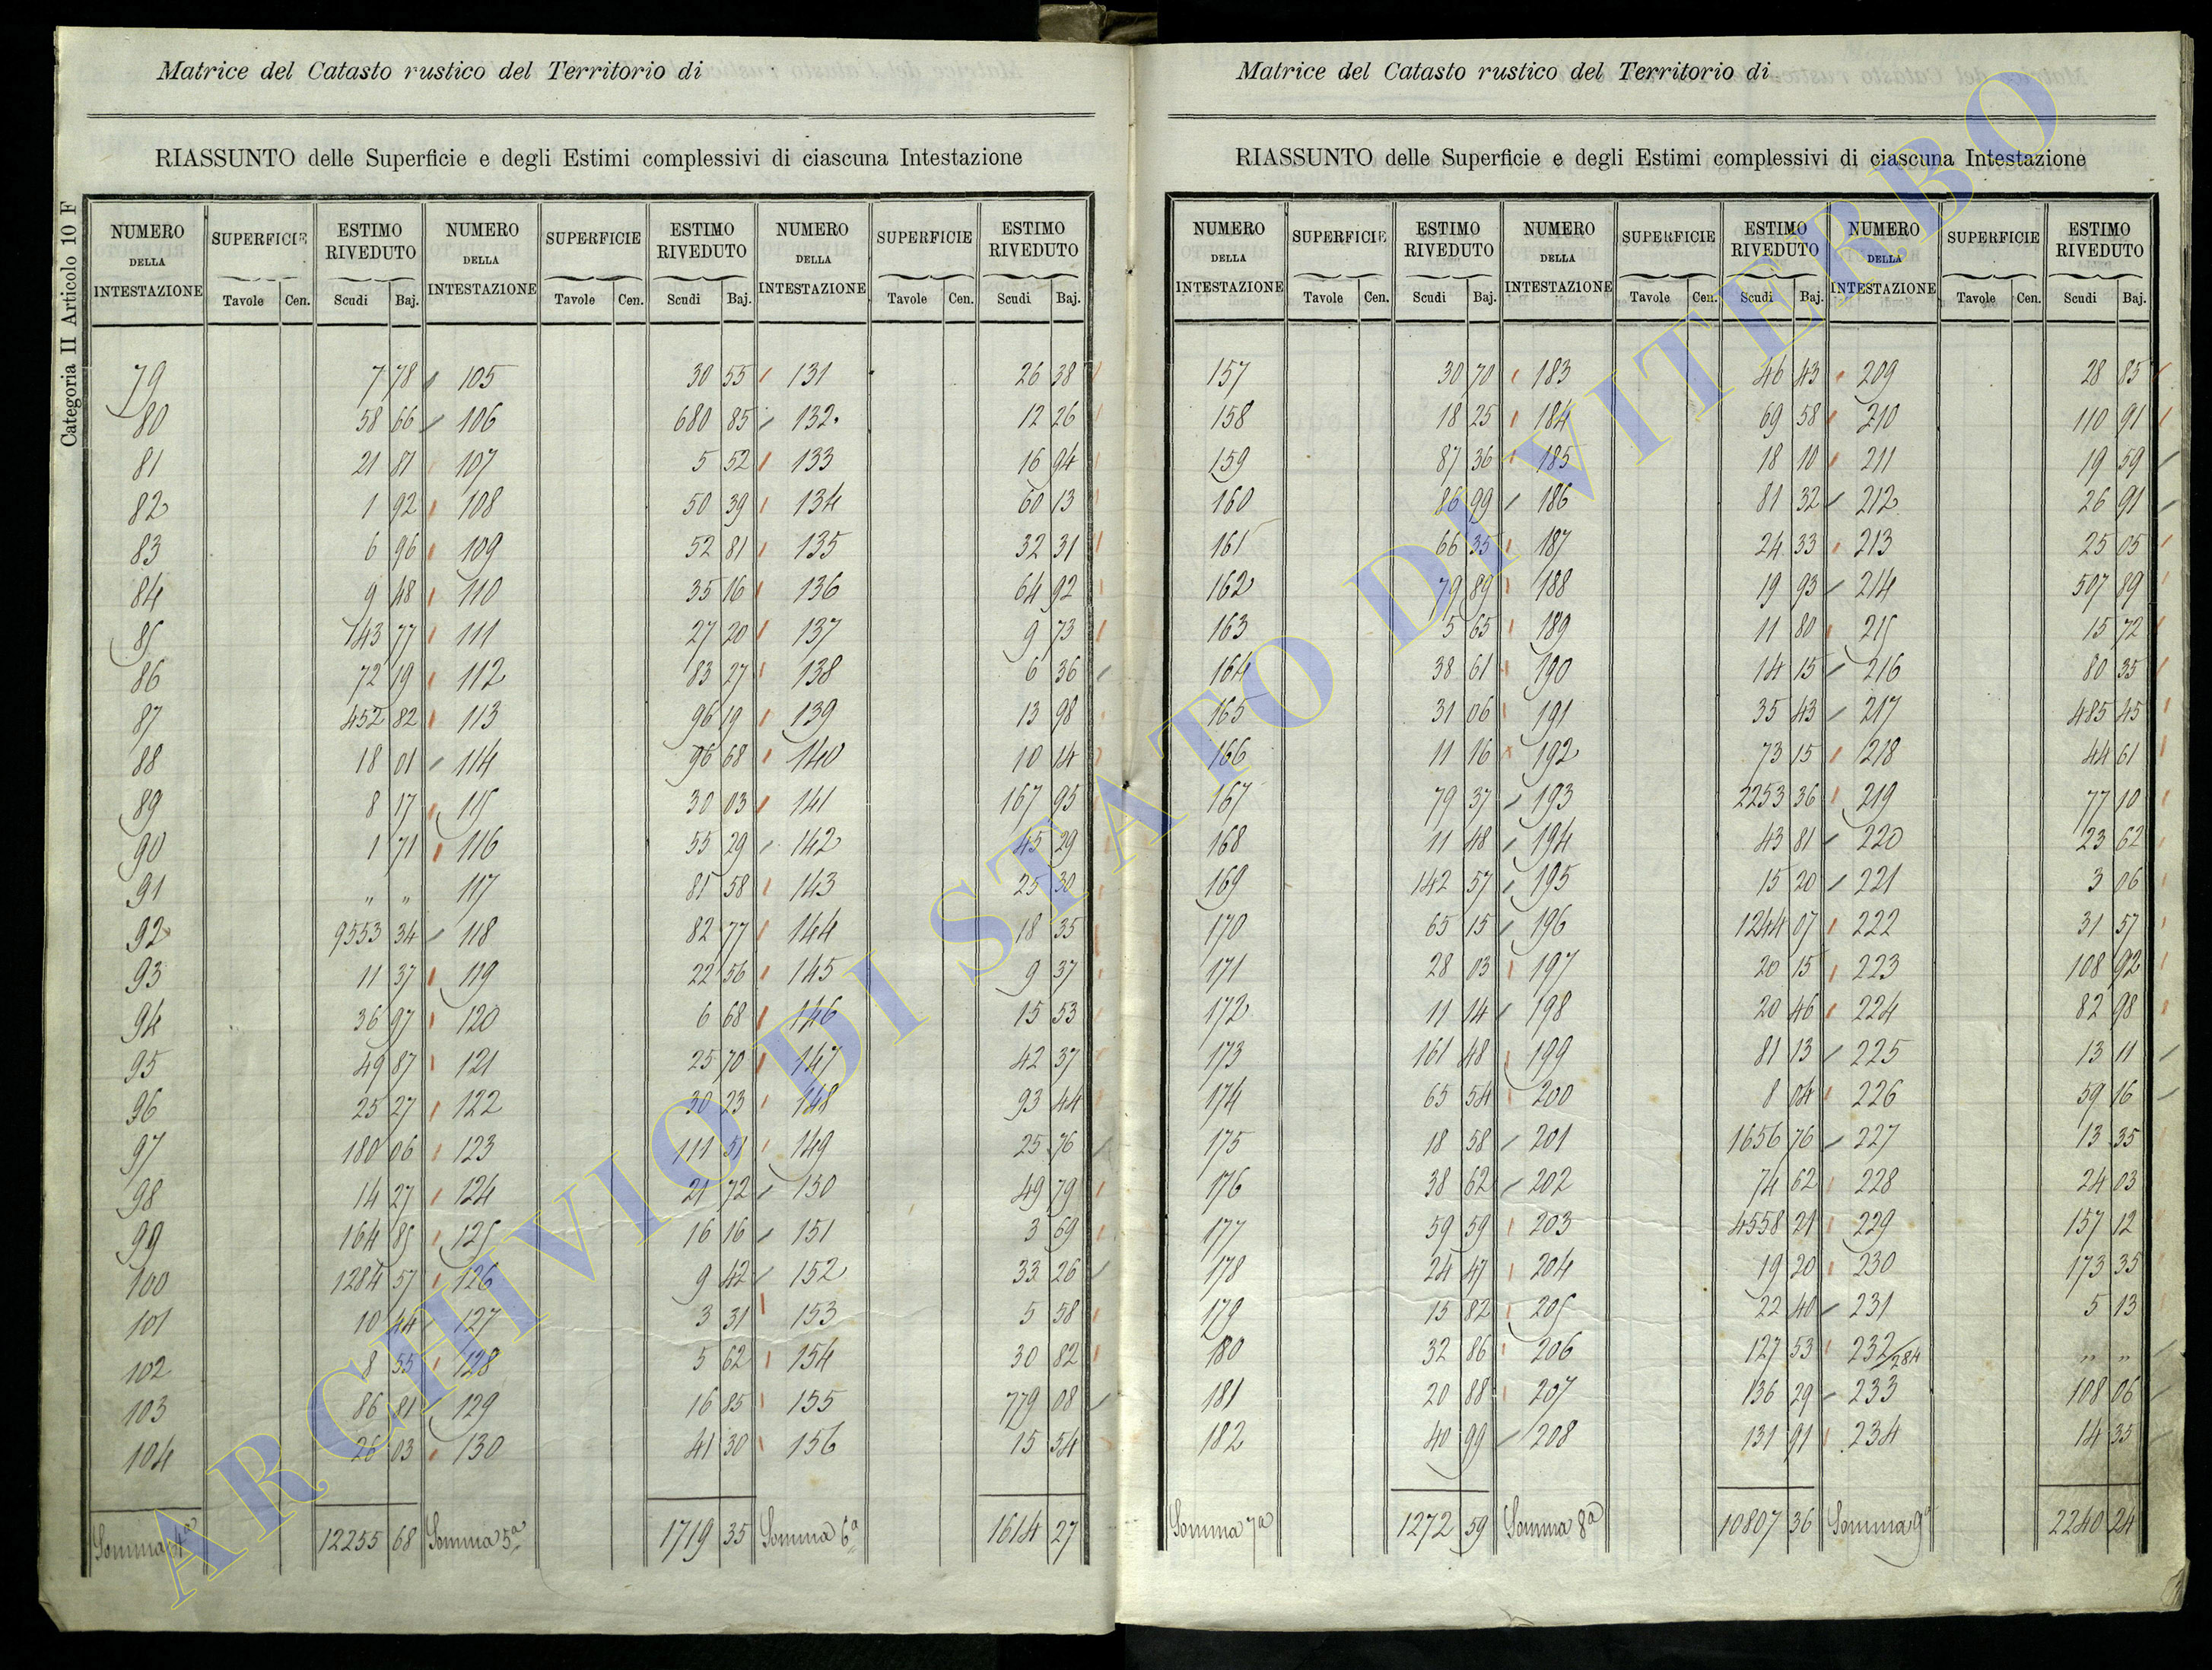 Matrice del Catasto rustico del Territorio di
RIASSUNTO delle Superficie e degli Estimi complessivi di ciascuna Intestazione
Categoria II Articolo 10 F
NUMERO DELLA INTESTAZIONE SUPERFICIE ESTIMO RIVEDUTO NUMERO DELLA INTESTAZIONE SUPERFICIE ESTIMO RIVEDUTO NUMERO DELLA INTESTAZIONE SUPERFICIE ESTIMO RIVEDUTO
Tavole Cen. Scudi Baj. Tavole Cen. Scudi Baj. Tavole Cen. Scudi Baj.
79 7 78 105 30 55 131 26 38
80 58 66 106 680 85 132 12 26
81 21 87 107 5 52 133 16 94
82 1 92 108 50 39 134 60 13
83 6 96 109 52 81 135 32 31
84 9 48 110 35 16 136 64 92
85 143 77 111 27 20 137 9 73
86 72 19 112 83 27 138 6 36
87 452 82 113 96 19 139 13 98
88 18 01 114 96 68 140 10 14
89 8 17 115 30 03 141 167 95
90 1 71 116 55 29 142 45 29
91 " " 117 81 58 143 25 30
92 9553 34 118 82 77 144 18 35
93 11 37 119 22 56 145 9 37
94 36 97 120 6 68 146 15 53
95 49 87 121 25 70 147 42 37
96 25 27 122 30 23 148 93 44
97 180 06 123 111 51 149 25 76
98 14 27 124 21 72 150 49 79
99 164 85 125 16 16 151 3 69
100 1284 57 126 9 42 152 33 26
101 10 44 127 3 31 153 5 58
102 8 55 128 5 62 154 30 82
103 86 81 129 16 85 155 779 08
104 26 03 130 41 30 156 15 54
Somma 4a 12255 68 Somma 5a 1719 35 Somma 6a 1614 27
Matrice del Catasto rustico del Territorio di
RIASSUNTO delle Superficie e degli Estimi complessivi di ciascuna Intestazione
NUMERO DELLA INTESTAZIONE SUPERFICIE ESTIMO RIVEDUTO NUMERO DELLA INTESTAZIONE SUPERFICIE ESTIMO RIVEDUTO NUMERO DELLA INTESTAZIONE SUPERFICIE ESTIMO RIVEDUTO
Tavole Cen. Scudi Baj. Tavole Cen. Scudi Baj. Tavole Cen. Scudi Baj.
157 30 70 183 46 43 209 28 85
158 18 25 184 69 58 210 110 91
159 87 36 185 18 10 211 19 59
160 86 99 186 81 32 212 26 91
161 66 35 187 24 33 213 25 05
162 79 89 188 19 93 214 507 89
163 5 65 189 11 80 215 15 72
164 38 61 190 14 15 216 80 35
165 31 06 191 35 43 217 485 45
166 11 16 192 73 15 218 44 61
167 79 37 193 2253 36 219 77 10
168 11 48 194 43 81 220 23 62
169 142 57 195 15 20 221 3 06
170 65 15 196 1244 07 222 31 57
171 28 03 197 20 15 223 108 92
172 11 14 198 20 46 224 82 98
173 161 48 199 81 13 225 13 11
174 65 54 200 8 04 226 59 16
175 18 58 201 1656 76 227 13 35
176 38 62 202 74 62 228 24 03
177 59 59 203 4558 21 229 157 12
178 24 47 204 19 20 230 173 35
179 15 82 205 22 40 231 5 13
180 32 86 206 127 53 232/284 " "
181 20 88 207 136 29 233 108 06
182 40 99 208 131 91 234 14 35
Somma 7a 1272 59 Somma 8a 10807 36 Somma 9a 2240 24
ARCHIVIO DI STATO DI VITERBO